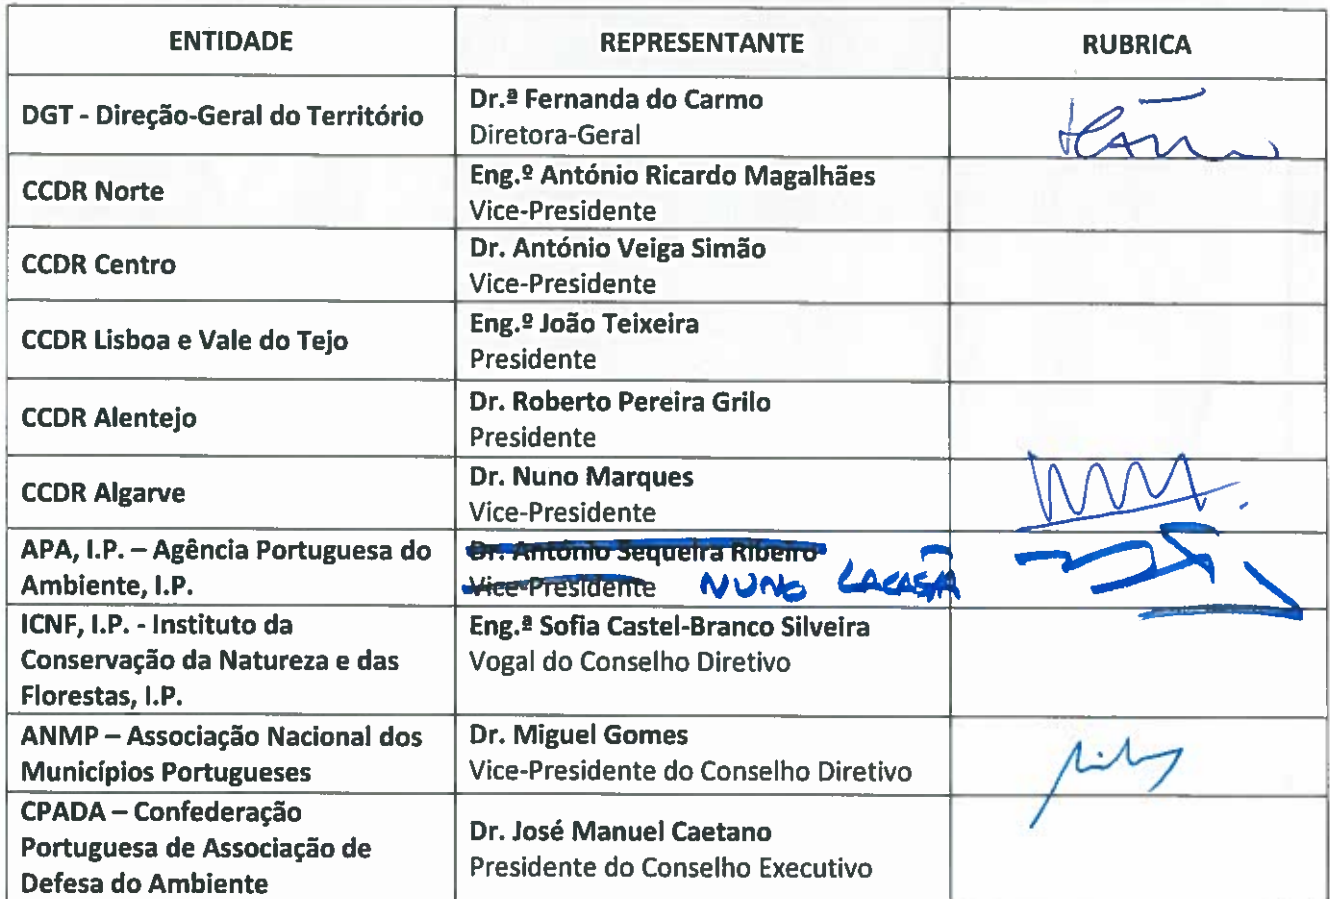 ENTIDADE REPRESENTANTE RUBRICA
DGT - Direção-Geral do Território
Dr.ª Fernanda do Carmo
Diretora-Geral
CCDR Norte
Eng.º António Ricardo Magalhães
Vice-Presidente
CCDR Centro
Dr. António Veiga Simão
Vice-Presidente
CCDR Lisboa e Vale do Tejo
Eng.º João Teixeira
Presidente
CCDR Alentejo
Dr. Roberto Pereira Grilo
Presidente
CCDR Algarve
Dr. Nuno Marques
Vice-Presidente
APA, I.P. – Agência Portuguesa do
Ambiente, I.P.
Dr. António Sequeira Ribeiro
Vice-Presidente NUNO LACASTA
ICNF, I.P. - Instituto da
Conservação da Natureza e das
Florestas, I.P.
Eng.ª Sofia Castel-Branco Silveira
Vogal do Conselho Diretivo
ANMP – Associação Nacional dos
Municípios Portugueses
Dr. Miguel Gomes
Vice-Presidente do Conselho Diretivo
CPADA – Confederação
Portuguesa de Associação de
Defesa do Ambiente
Dr. José Manuel Caetano
Presidente do Conselho Executivo